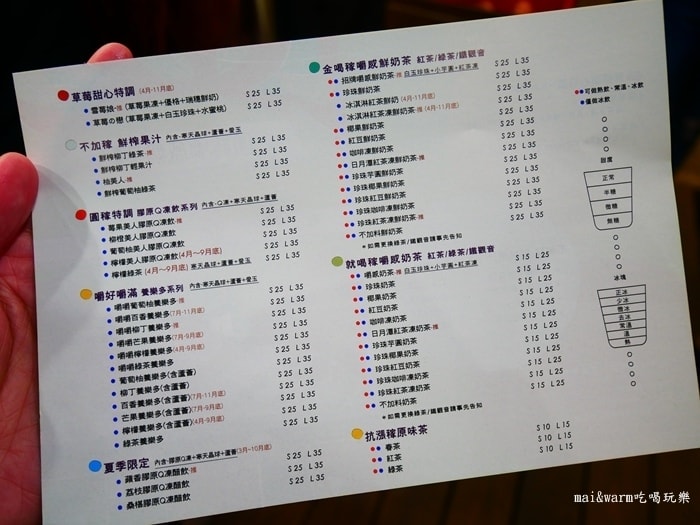 草莓甜心特調 (4月-11月底)
雪莓娘-推 (草莓果凍+優格+瑞穗鮮奶) S 25 L 35
草莓の戀 (草莓果凍+白玉珍珠+水蜜桃) S 25 L 35
不加稼 鮮榨果汁 內含-寒天晶球+蘆薈+愛玉
鮮榨柳丁綠茶-推 S 25 L 35
鮮榨柳丁輕果汁 S 25 L 35
柚美人-推 S 25 L 35
鮮榨葡萄柚綠茶 S 25 L 35
圓稼特調 膠原Q凍飲系列 內含-Q凍+寒天晶球+蘆薈
莓果美人膠原Q凍飲-推 S 25 L 35
柳橙美人膠原Q凍飲 S 25 L 35
葡萄柚美人膠原Q凍飲 S 25 L 35
檸檬美人膠原Q凍飲(4月～9月底) S 25 L 35
檸檬綠茶 (4月～9月底) 寒天晶球+蘆薈+愛玉 S 25 L 35
嚼好嚼滿 養樂多系列 內含-寒天晶球+蘆薈+愛玉
嚼嚼葡萄柚養樂多-推 S 25 L 35
嚼嚼百香養樂多(7月-11月底) S 25 L 35
嚼嚼柳丁養樂多-推 S 25 L 35
嚼嚼芒果養樂多(7月-9月底) S 25 L 35
嚼嚼檸檬養樂多(4月-9月底) S 25 L 35
嚼嚼綠茶養樂多 S 25 L 35
葡萄柚養樂多(含蘆薈) S 25 L 35
柳丁養樂多(含蘆薈) S 25 L 35
百香養樂多(含蘆薈)(7月-11月底) S 25 L 35
芒果養樂多(含蘆薈)(7月-9月底) S 25 L 35
檸檬養樂多(含蘆薈)(4月-9月底) S 25 L 35
綠茶養樂多 S 25 L 35
夏季限定 內含-膠原Q凍+寒天晶球+蘆薈(3月~10月底)
蘋香膠原Q凍醋飲-推 S 25 L 35
荔枝膠原Q凍醋飲 S 25 L 35
桑椹膠原Q凍醋飲 S 25 L 35
金喝稼嚼感鮮奶茶 紅茶/綠茶/鐵觀音
招牌嚼感鮮奶茶-推 白玉珍珠+小芋圓+紅茶凍 S 25 L 35
珍珠鮮奶茶 S 25 L 35
冰淇淋紅茶鮮奶 (4月-11月底) S 25 L 35
冰淇淋紅茶凍鮮奶茶-推 (4月-11月底) S 25 L 35
椰果鮮奶茶 S 25 L 35
紅豆鮮奶茶 S 25 L 35
咖啡凍鮮奶茶 S 25 L 35
日月潭紅茶凍鮮奶茶-推 S 25 L 35
珍珠芋圓鮮奶茶 S 25 L 35
珍珠椰果鮮奶茶 S 25 L 35
珍珠紅豆鮮奶茶 S 25 L 35
珍珠咖啡凍鮮奶茶 S 25 L 35
珍珠紅茶凍鮮奶茶-推 S 25 L 35
不加料鮮奶茶 S 25 L 35
＊如需更換綠茶/鐵觀音請事先告知
就喝稼嚼感奶茶 紅茶/綠茶/鐵觀音
嚼感奶茶-推 白玉珍珠+小芋圓+紅茶凍 S 15 L 25
珍珠奶茶 S 15 L 25
椰果奶茶 S 15 L 25
紅豆奶茶 S 15 L 25
咖啡凍奶茶 S 15 L 25
日月潭紅茶凍奶茶-推 S 15 L 25
珍珠芋圓奶茶 S 15 L 25
珍珠椰果奶茶 S 15 L 25
珍珠紅豆奶茶 S 15 L 25
珍珠咖啡凍奶茶 S 15 L 25
珍珠紅茶凍奶茶 S 15 L 25
不加料奶茶 S 15 L 25
＊如需更換綠茶/鐵觀音請事先告知
抗漲稼原味茶
春茶 S 10 L 15
紅茶 S 10 L 15
綠茶 S 10 L 15
可做熱飲、常溫、冰飲
僅做冰飲
甜度
正常
半糖
微糖
無糖
冰塊
正冰
少冰
微冰
去冰
常溫
溫
熱
mai&warm吃喝玩樂